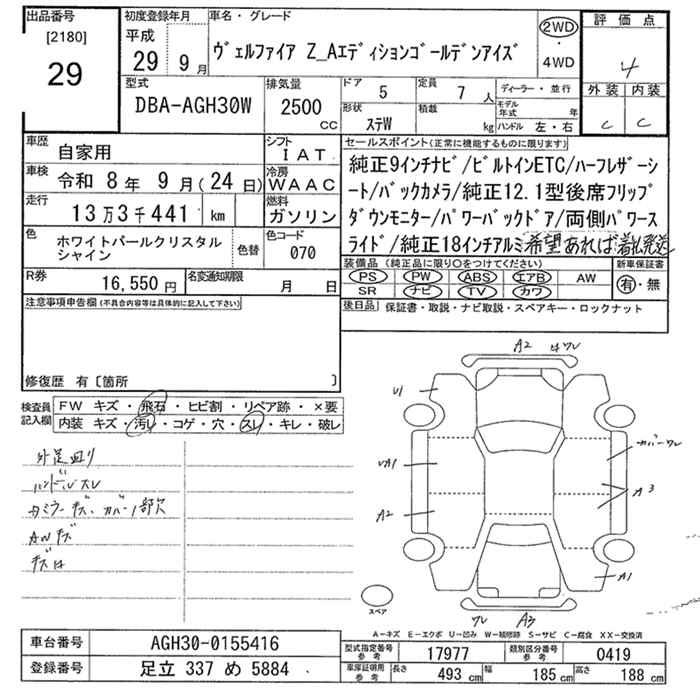 出品番号
[2180]
29
初度登録年月
平成
29 9 月
車名・グレード
ヴェルファイア Z_Aエディションゴールデンアイズ
2WD
・
4WD
評価点
4
外装 内装
C C
型式
DBA-AGH30W
排気量
2500
CC
ドア 5
定員 7 人
形状 ステW
積載 kg
ディーラー・並行
モデル年式 年
ハンドル 左・右
車歴
自家用
シフト
IAT
車検
令和 8 年 9 月 (24 日)
冷房
WAAC
走行
13 万 3 千 441 km
燃料
ガソリン
色
ホワイトパールクリスタル
シャイン
色替
色コード
070
R券
16,550 円
名変通知期限
月 日
セールスポイント(正常に機能するものに限ります)
純正9インチナビ/ビルトインETC/ハーフレザーシ
ート/バックカメラ/純正12.1型後席フリップ
ダウンモニター/パワーバックドア/両側パワース
ライド/純正18インチアルミ 希望あれば着払発送
装備品 (純正品に限り○をつけてください)
PS PW ABS エアB AW
SR ナビ TV カワ
新車保証書
有・無
後日品 保証書・取説・ナビ取説・スペアキー・ロックナット
注意事項申告欄 (不具合内容等は具体的に記入して下さい)
修復歴 有〔箇所 〕
検査員
記入欄
FW キズ・飛石・ヒビ割・リペア跡・×要
内装 キズ・汚レ・コゲ・穴・スレ・キレ・破レ
外足廻り
ハンドルスレ
AWキズ
A2
ワレ
U1
カバーワレ
A3
A2
A1
ワレ
A3
スペア
A-キズ E-エクボ U-凹み W-補修跡 S-サビ C-腐食 XX-交換済
車台番号
AGH30-0155416
登録番号
足立 337 め 5884
型式指定番号
参考
17977
類別区分番号
参考
0419
車庫証明用
参考
長さ
493 cm
幅
185 cm
高さ
188 cm